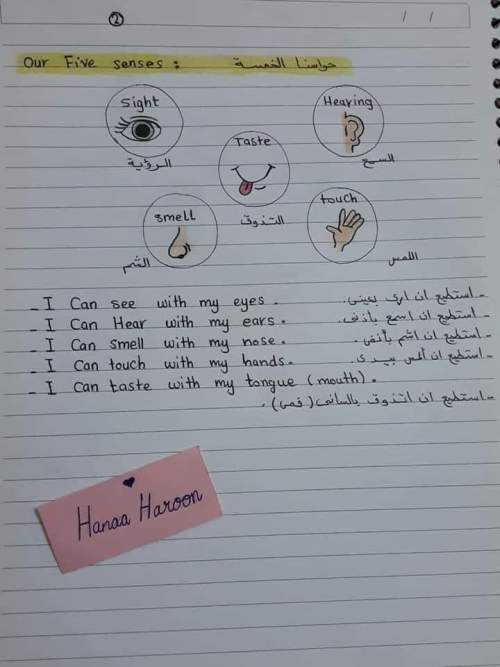 ②
/ /
Our Five senses : حواسنا الخمسة
Sight
Hearing
Taste
الرؤية
السمع
smell
touch
التذوق
الشم
اللمس
_ I Can see with my eyes . - استطيع ان ارى بعينى.
_ I Can Hear with my ears . - استطيع ان اسمع بأذنى.
_ I Can smell with my nose . - استطيع ان اشم بأنفى.
_ I Can touch with my hands . - استطيع ان ألمس بيدى.
_ I Can taste with my tongue (mouth) .
- استطيع ان اتذوق بالسانى (فمى) .
Hanaa Haroon